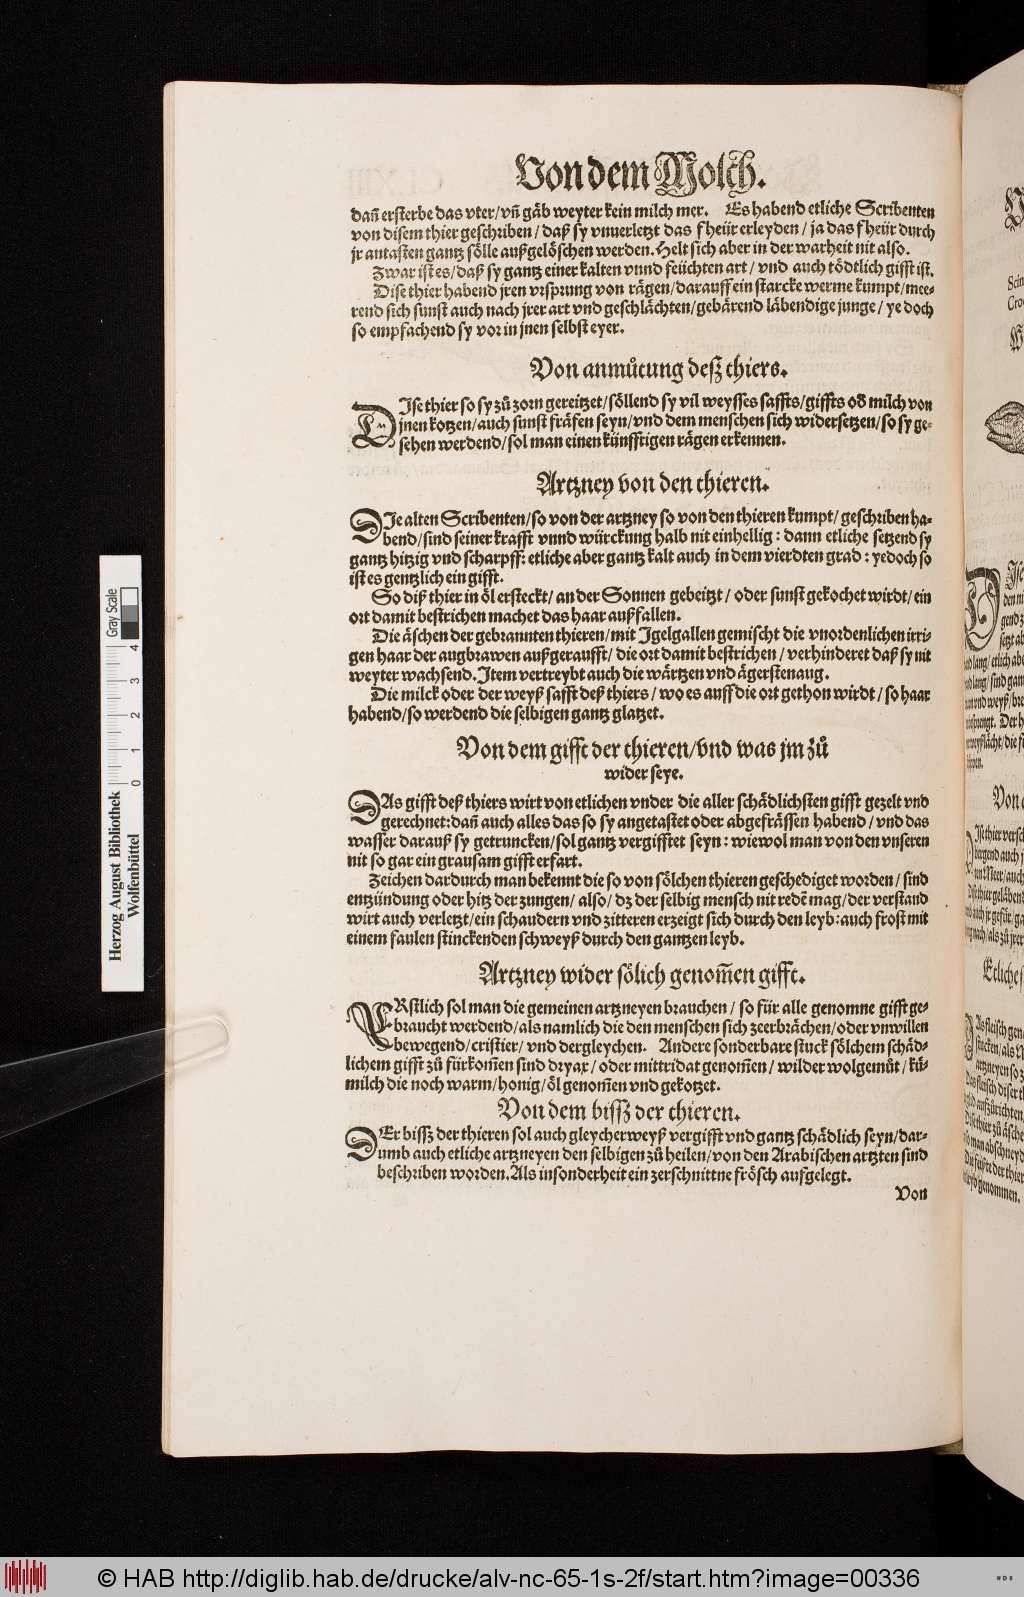 Von dem Molch.
dañ ersterbe das vter/vñ gäb weyter kein milch mer. Es habend etliche Scribenten
von disem thier geschriben/daß sy vnuerletzt das fheür erleyden/ja das fheür durch
jr antasten gantz sölle außgelöschen werden. Helt sich aber in der warheit nit also.
Zwar ist es/daß sy gantz einer kalten vnnd feüchten art/vnd auch tödtlich gifft ist.
Dise thier habend jren vrsprung von rägen/darauff ein starcke werme kumpt/mee-
rend sich sunst auch nach jrer art vnd geschlächten/gebärend läbendige junge/ye doch
so empfachend sy vor in jnen selbst eyer.
Von anmůtung deß thiers.
DIse thier so sy zů zorn gereitzet/söllend sy vil weysses saffts/giffts od milch von
jnen kotzen/auch sunst fräfen seyn/vnd dem menschen sich widersetzen/so sy ge-
sehen werdend/sol man einen künfftigen rägen erkennen.
Artzney von den thieren.
DIe alten Scribenten/so von der artzney so von den thieren kumpt/geschriben ha-
bend/sind seiner krafft vnnd würckung halb nit einhellig: dann etliche setzend sy
gantz hitzig vnd scharpff: etliche aber gantz kalt auch in dem vierdten grad: yedoch so
ist es gentzlich ein gifft.
So diß thier in öl ersteckt/an der Sonnen gebeitzt/oder sunst gekochet wirdt/ein
ort damit bestrichen machet das haar außfallen.
Die äschen der gebrannten thieren/mit Igelgallen gemischt die vnordenlichen irri-
gen haar der augbrawen außgeraufft/die ort damit bestrichen/verhinderet daß sy nit
weyter wachsend. Item vertreybt auch die wärtzen vnd ägerstenaug.
Die milck oder der weyß safft deß thiers/wo es auff die ort gethon wirdt/so haar
habend/so werdend die selbigen gantz glatzet.
Von dem gifft der thieren/vnd was jm zů
wider seye.
DAs gifft deß thiers wirt von etlichen vnder die aller schädlichsten gifft gezelt vnd
gerechnet: dañ auch alles das so sy angetastet oder abgefrässen habend/vnd das
wasser darauß sy getruncken/sol gantz vergifftet seyn: wiewol man von den vnseren
nit so gar ein grausam gifft erfart.
Zeichen dardurch man bekennt die so von sölchen thieren geschediget worden/sind
entzündung oder hitz der zungen/also/dz der selbig mensch nit redẽ mag/der verstand
wirt auch verletzt/ein schaudern vnd zitteren erzeigt sich durch den leyb: auch frost mit
einem faulen stinckenden schweyß durch den gantzen leyb.
Artzney wider sölich genom̃en gifft.
ERstlich sol man die gemeinen artzneyen brauchen/so für alle genomne gifft ge-
braucht werdend/als namlich die den menschen sich zeerbrächen/oder vnwillen
bewegend/cristier/vnd dergleychen. Andere sonderbare stuck sölchem schäd-
lichem gifft zů fürkom̃en sind dryax/oder mittridat genom̃en/wilder wolgemůt/kü-
milch die noch warm/honig/öl genom̃en vnd gekotzet.
Von dem bissz der thieren.
DEr bissz der thieren sol auch gleycherweyß vergifft vnd gantz schädlich seyn/dar-
umb auch etliche artzneyen den selbigen zů heilen/von den Arabischen artzten sind
beschriben worden. Als insonderheit ein zerschnittne frösch aufgelegt.
Von
Herzog August Bibliothek
Wolfenbüttel
0 1 2 3 4
Gray Scale
© HAB http://diglib.hab.de/drucke/alv-nc-65-1s-2f/start.htm?image=00336